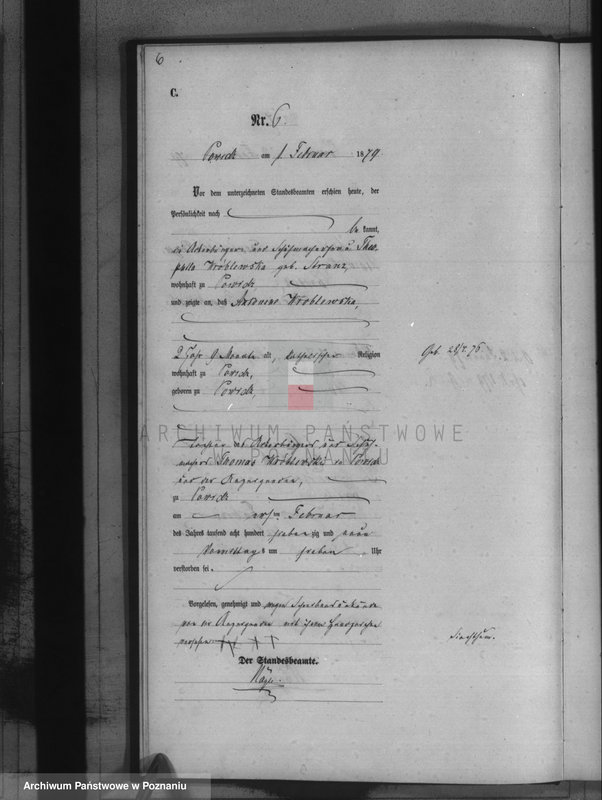 6
C.
Nr. 6.
Powidz am 1 Februar 1879.
Vor dem unterzeichneten Standesbeamten erschien heute, der
Persönlichkeit nach
be kannt,
die Ackerbürger- und Schuhmacherfrau Theo-
phila Wróblewska geb. Stranz,
wohnhaft zu Powidz,
und zeigte an, daß Antonina Wroblewska,
2 Jahr 9 Monate alt, katholischer Religion
wohnhaft zu Powidz,
geboren zu Powidz,
ARCHIWUM PAŃSTWOWE
W POZNANIU
Tochter des Ackerbürgers und Schuh-
machers Thomas Wróblewski zu Powidz
und der Anzeigenden,
zu Powidz
am ersten Februar
des Jahres tausend acht hundert sieben zig und neun
Vormittags um sieben Uhr
verstorben sei.
Vorgelesen, genehmigt und wegen Schreibensunkunde
von der Anzeigenden mit ihrem Handzeichen
versehen +++
Der Standesbeamte.
Geb. 76
Archiwum Państwowe w Poznaniu